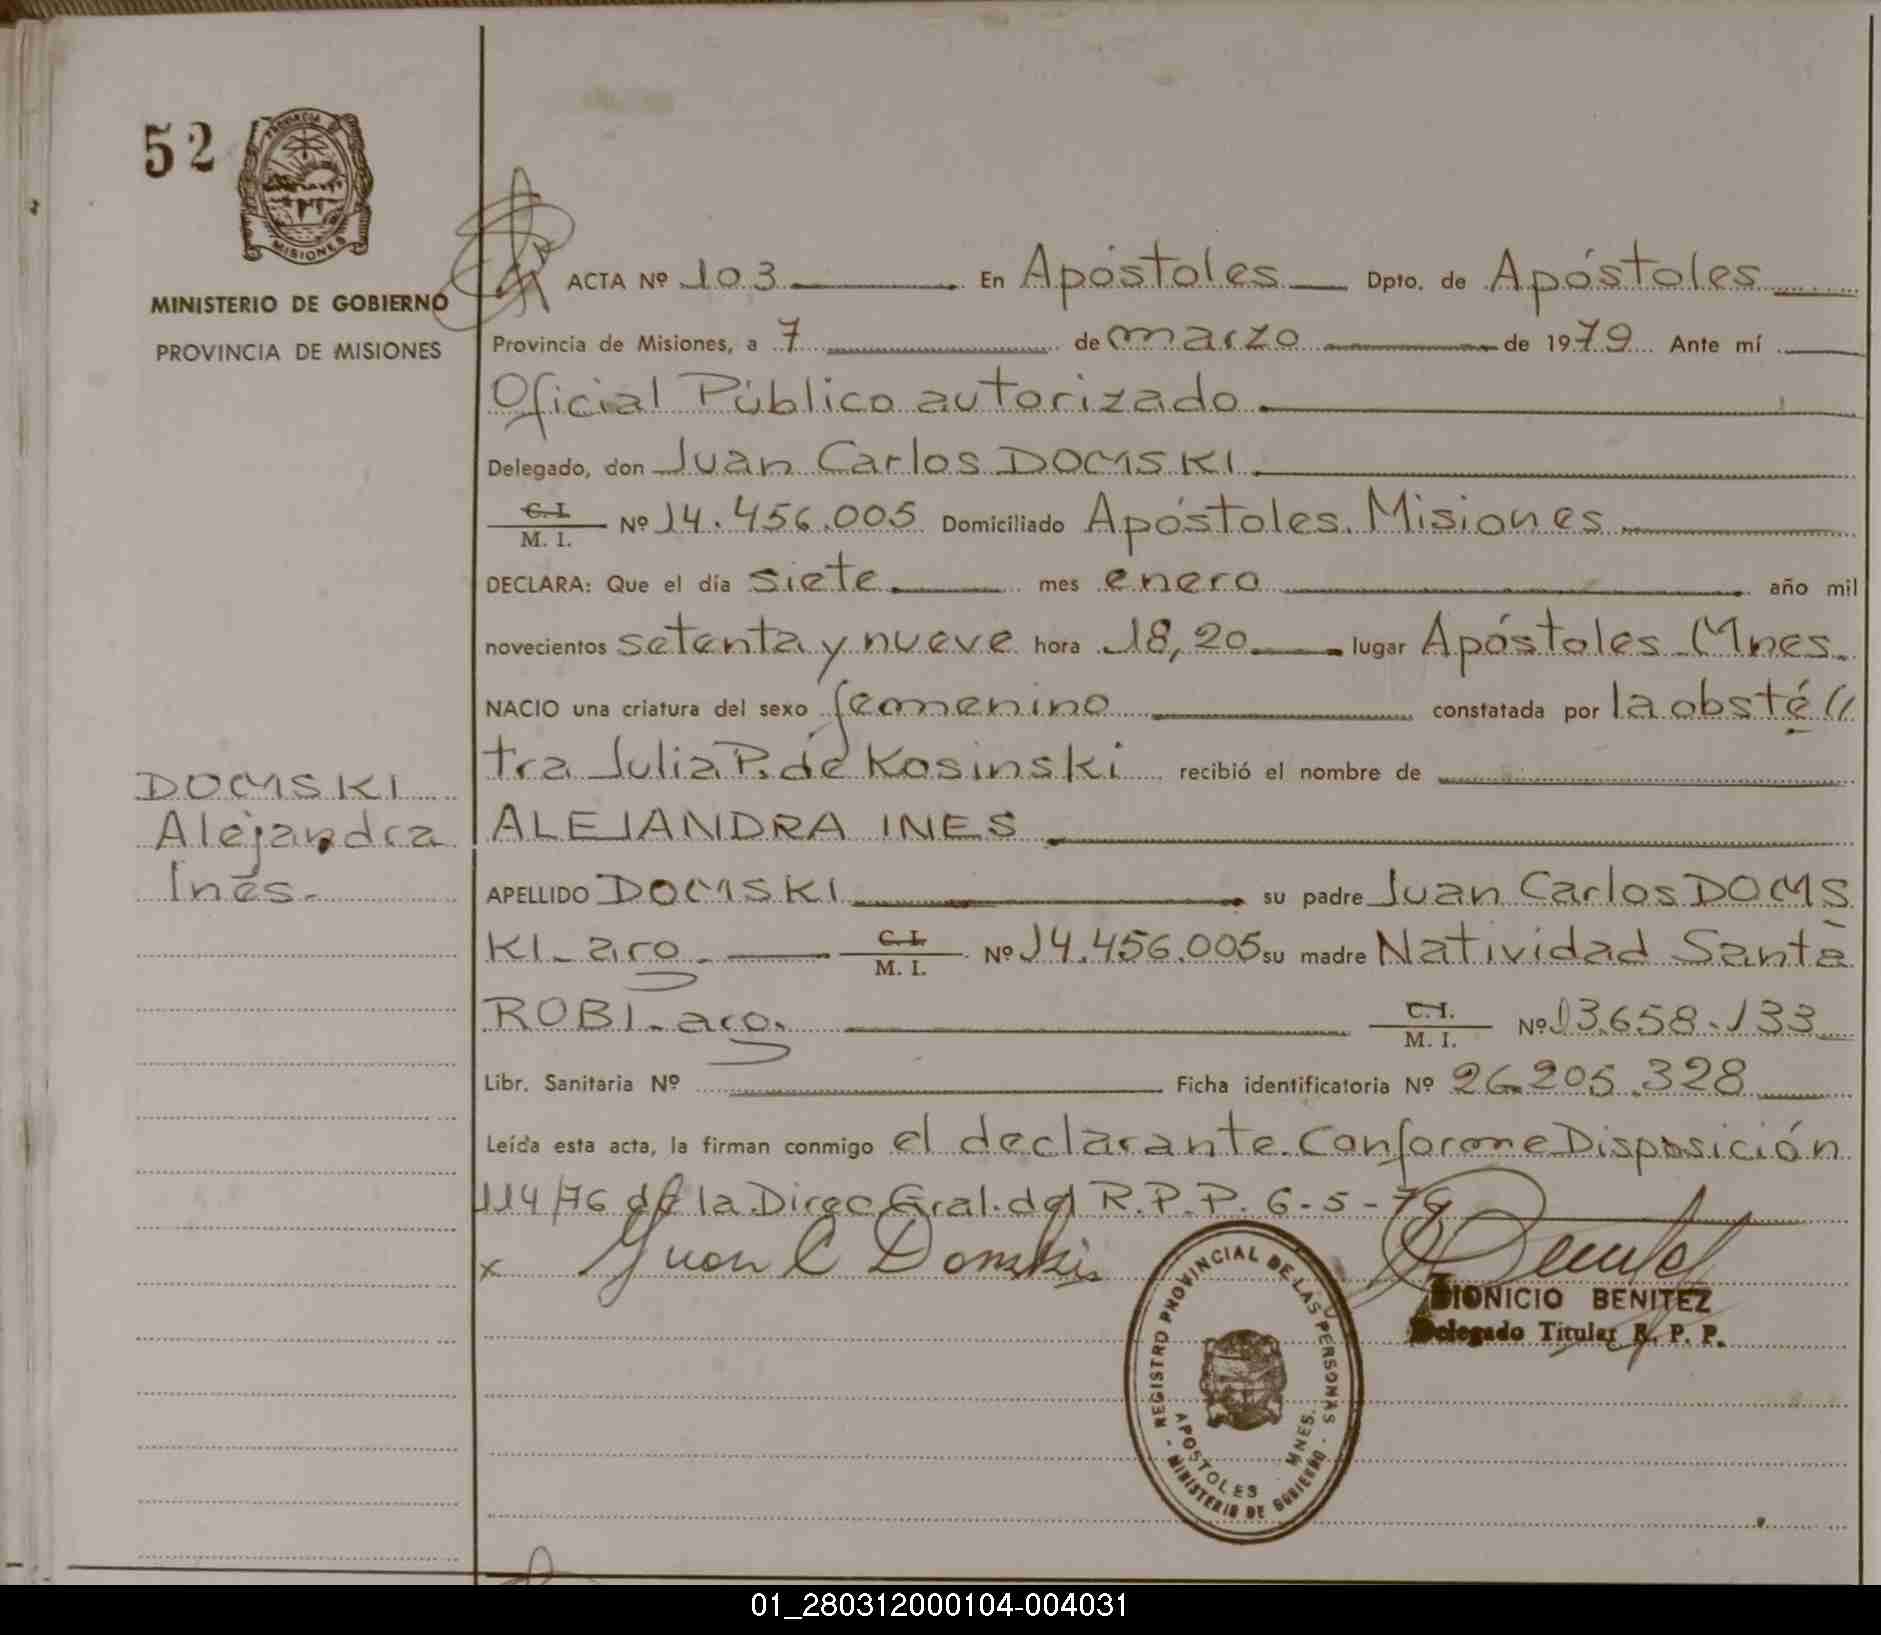 52
PROVINCIA
MISIONES
MINISTERIO DE GOBIERNO
PROVINCIA DE MISIONES
DOMSKI
Alejandra
Inés.-
ACTA Nº 103 En Apóstoles Dpto. de Apóstoles
Provincia de Misiones, a 7 de marzo de 1979 Ante mí
Oficial Público autorizado
Delegado, don Juan Carlos DOMSKI
C. I.
M. I. Nº 14.456.005 Domiciliado Apóstoles. Misiones
DECLARA: Que el día siete mes enero año mil
novecientos setenta y nueve hora 18,20 lugar Apóstoles Mnes.
NACIO una criatura del sexo femenino constatada por la obsté//
tra Julia P. de Kosinski recibió el nombre de
ALEJANDRA INES
APELLIDO DOMSKI su padre Juan Carlos DOMS
KI- aro. C. I. M. I. Nº 14.456.005 su madre Natividad Santa
ROBI- aro. C. I. M. I. Nº 13.658.133
Libr. Sanitaria Nº Ficha identificatoria Nº 26.205.328
Leída esta acta, la firman conmigo el declarante. Conforme Disposición
114/76 de la Direc. Gral. del R.P.P. 6-5-76
x Juan C Domski
DIONICIO BENITEZ
Delegado Titular R. P. P.
REGISTRO PROVINCIAL DE LAS PERSONAS
APOSTOLES MNES.
- MINISTERIO DE GOBIERNO -
01_280312000104-004031